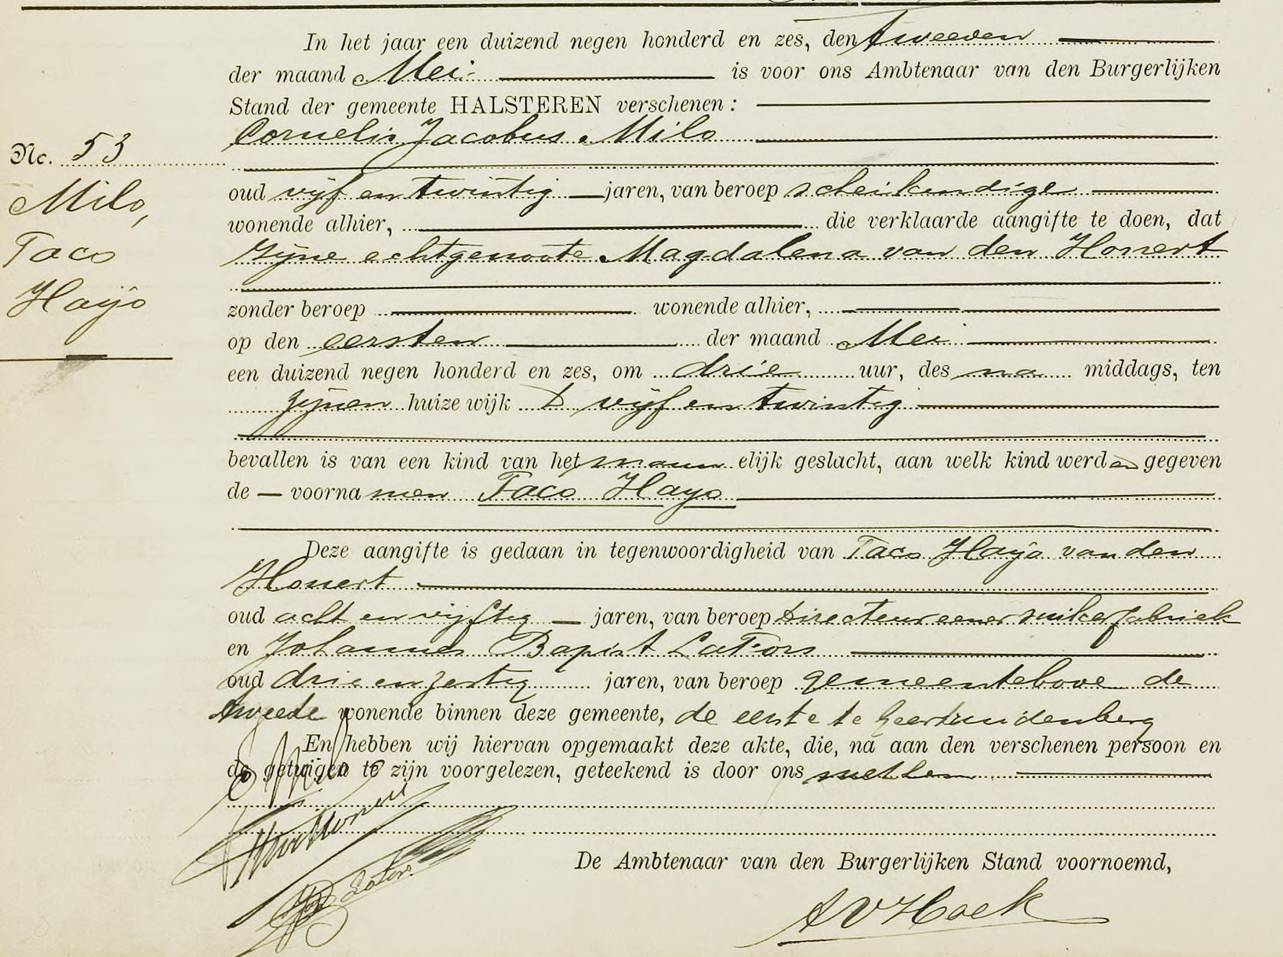 In het jaar een duizend negen honderd en zes, den tweeden
der maand Mei is voor ons Ambtenaar van den Burgerlijken
Stand der gemeente HALSTEREN verschenen:
Cornelis Jacobus Milo
No. 53
Milo,
Taco
Hayo
oud vijf en twintig jaren, van beroep scheikundige
wonende alhier, die verklaarde aangifte te doen, dat
zijne echtgenoote Magdalena van den Honert
zonder beroep wonende alhier,
op den eersten der maand Mei
een duizend negen honderd en zes, om drie uur, des na middags, ten
zijnen huize wijk D vijf en twintig
bevallen is van een kind van het mannelijk geslacht, aan welk kind werden gegeven
de — voornamen Taco Hayo
Deze aangifte is gedaan in tegenwoordigheid van Taco Hayo van den
Honert
oud acht en vijftig jaren, van beroep directeur eener suikerfabriek
en Johannes Baptist
oud drie en zestig jaren, van beroep gemeentebode de
tweede wonende binnen deze gemeente, de eerste te Geertruidenberg
En hebben wij hiervan opgemaakt deze akte, die, na aan den verschenen persoon en
de getuigen te zijn voorgelezen, geteekend is door ons met hen
De Ambtenaar van den Burgerlijken Stand voornoemd,
A V Hoek